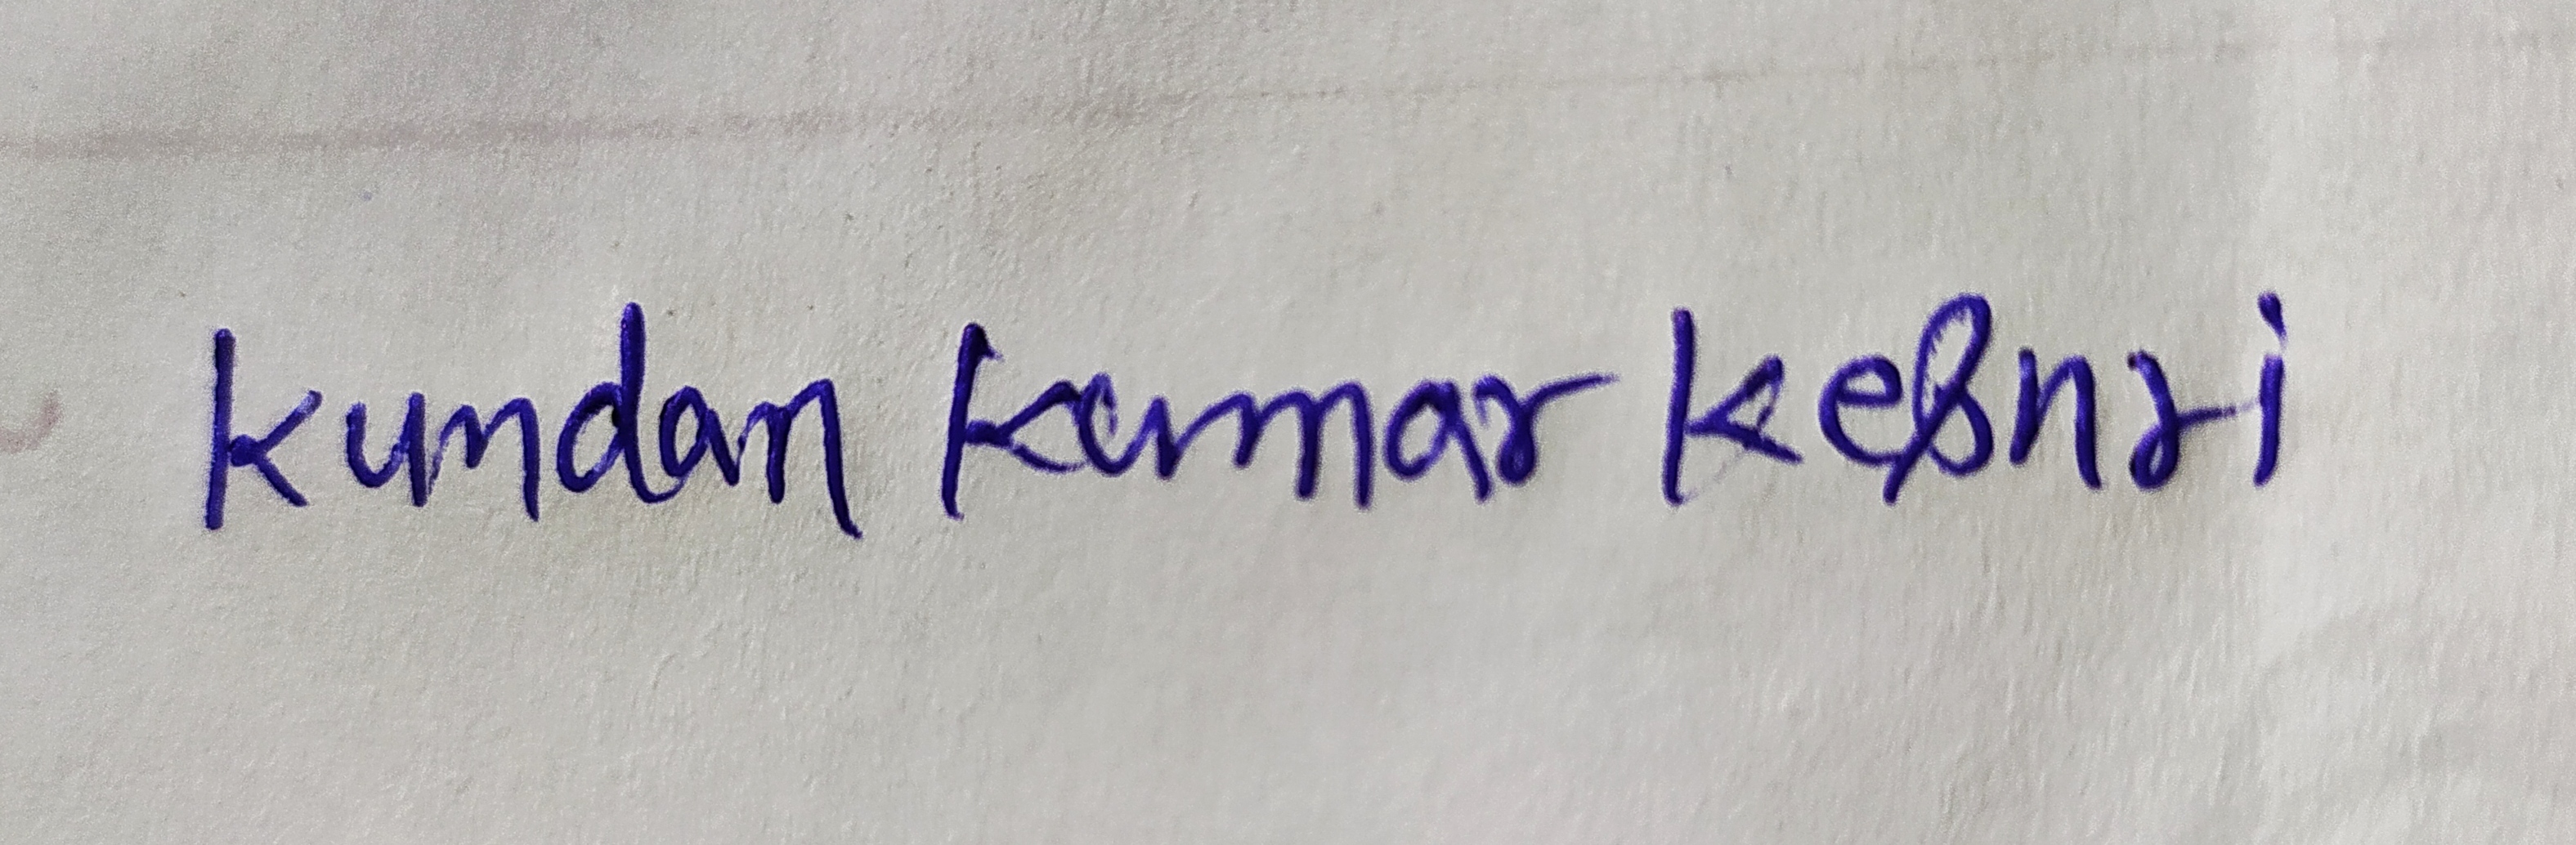 Kundan Kumar Kesnri